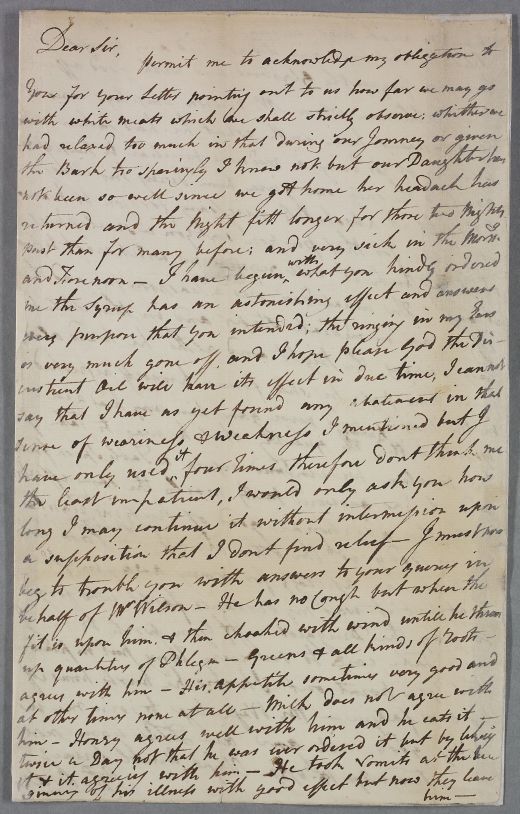 Dear Sir,
permit me to acknowledge my obligation to
You for your Letter pointing out to us how far we may go
with white meats which we shall strictly observe: whither we
had relaxed too much in that during our Journey or given
the Bark too sparingly I know not but our Daughter has
not been so well since we gott home her headach has
returned and the Night fitt longer for those two Nights
past than for many before; and very sick in the Morn:
and Forenoon — I have begun with what you kindly ordered
me the Syrup has an astonishing effect and answers
every purpose that you intended; the ringing in my Ears
is very much gone off and I hope please God the
Oil will have its effect in due time, I cannot
say that I have as yet found any abatement in that
sense of weariness & weakness I mentioned but I
have only used it four times therefore dont think me
the least impatient, I would only ask you how
long I may continue it without intermission upon
a supposition that I dont find relief — I must now
beg to trouble you with answers to your querys in
behalf of Mr Wilson — He has no Cough but when the
fit is upon him, & then choaked with wind untill he throws
up quantitys of Phlegm — Greens & all kinds of Roots
agrees with him — His appetite sometimes very good and
at other times none at all — Milk does not agree with
him — Honey agrees well with him and he eats it
twice a Day not that he was ever ordered it but by
it & it agrees with him — He took vomits at the be
ginning of his illness with good effect but now they leave
him —